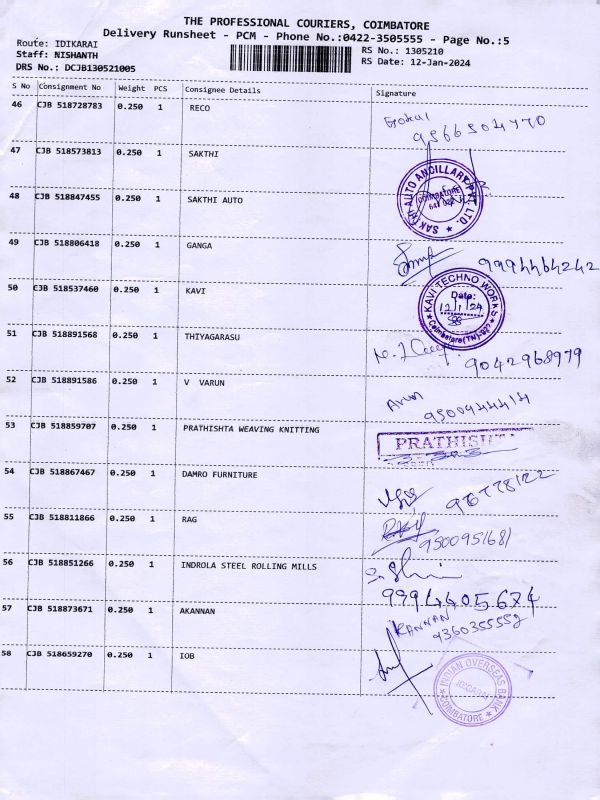 THE PROFESSIONAL COURIERS, COIMBATORE
Delivery Runsheet - PCM - Phone No.:0422-3505555 - Page No.:5
Route: IDIKARAI
RS No.: 1305210
Staff: NISHANTH
RS Date: 12-Jan-2024
DRS No.: DCJB130521005
S No Consignment No Weight PCS Consignee Details Signature
46 CJB 518728783 0.250 1 RECO
Gokul
9566504770
47 CJB 518573813 0.250 1 SAKTHI
SAKTHI AUTO ANCILLARY PVT. LTD.
COIMBATORE
48 CJB 518847455 0.250 1 SAKTHI AUTO
49 CJB 518806418 0.250 1 GANGA
9994464242
50 CJB 518537460 0.250 1 KAVI
KAVI TECHNO WORKS
Date:
12/1/24
Coimbatore(TN)
51 CJB 518891568 0.250 1 THIYAGARASU
9042968979
52 CJB 518891586 0.250 1 V VARUN
Arun
9500944414
53 CJB 518859707 0.250 1 PRATHISHTA WEAVING KNITTING
PRATHISHT
54 CJB 518867467 0.250 1 DAMRO FURNITURE
55 CJB 518811866 0.250 1 RAG
9500951681
56 CJB 518851266 0.250 1 INDROLA STEEL ROLLING MILLS
9994405674
57 CJB 518873671 0.250 1 AKANNAN
KANNAN
9360355552
58 CJB 518659270 0.250 1 IOB
INDIAN OVERSEAS BANK
IDIGARAI
COIMBATORE